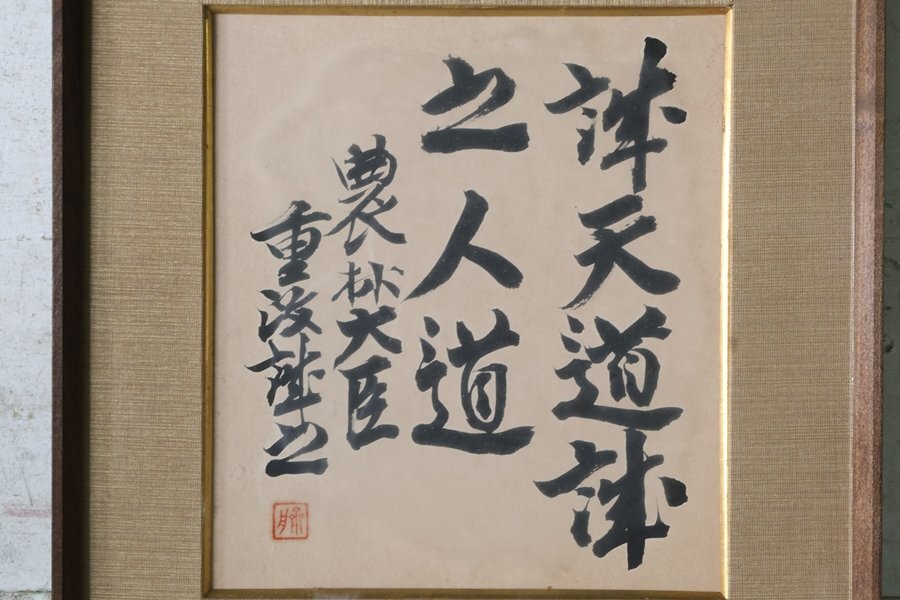 誠天道誠
之人道
農林大臣
重政誠之